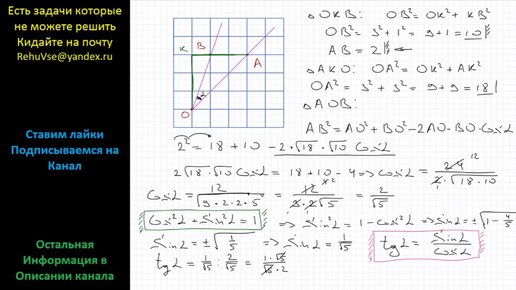 Есть задачи которые
не можете решить
Кидайте на почту
RehuVse@yandex.ru
Ставим лайки
Подписываемся на
Канал
Остальная
Информация в
Описании канала
K B A
O α
△OKB: OB² = OK² + KB²
OB² = 3² + 1² = 9+1 = 10
AB = 2
△AKO: OA² = OK² + AK²
OA² = 3² + 3² = 9+9 = 18
△AOB:
AB² = AO² + BO² - 2AO·BO·Cosα
2² = 18 + 10 - 2·√18·√10 Cosα
2√18·√10 Cosα = 18+10-4 => Cosα = 24 12 / 2·√18·10
Cosα = 12 / √9·2·2·5 = 12 ×2 / 3·2√5 = 2/√5
Cos²α + Sin²α = 1 => Sin²α = 1 - Cos²α => Sinα = ±√1 - 4/5
Sinα = ±√1/5 => Sinα = 1/√5 tgα = Sinα/Cosα
tgα = 1/√5 : 2/√5 = 1·√5 / √5·2